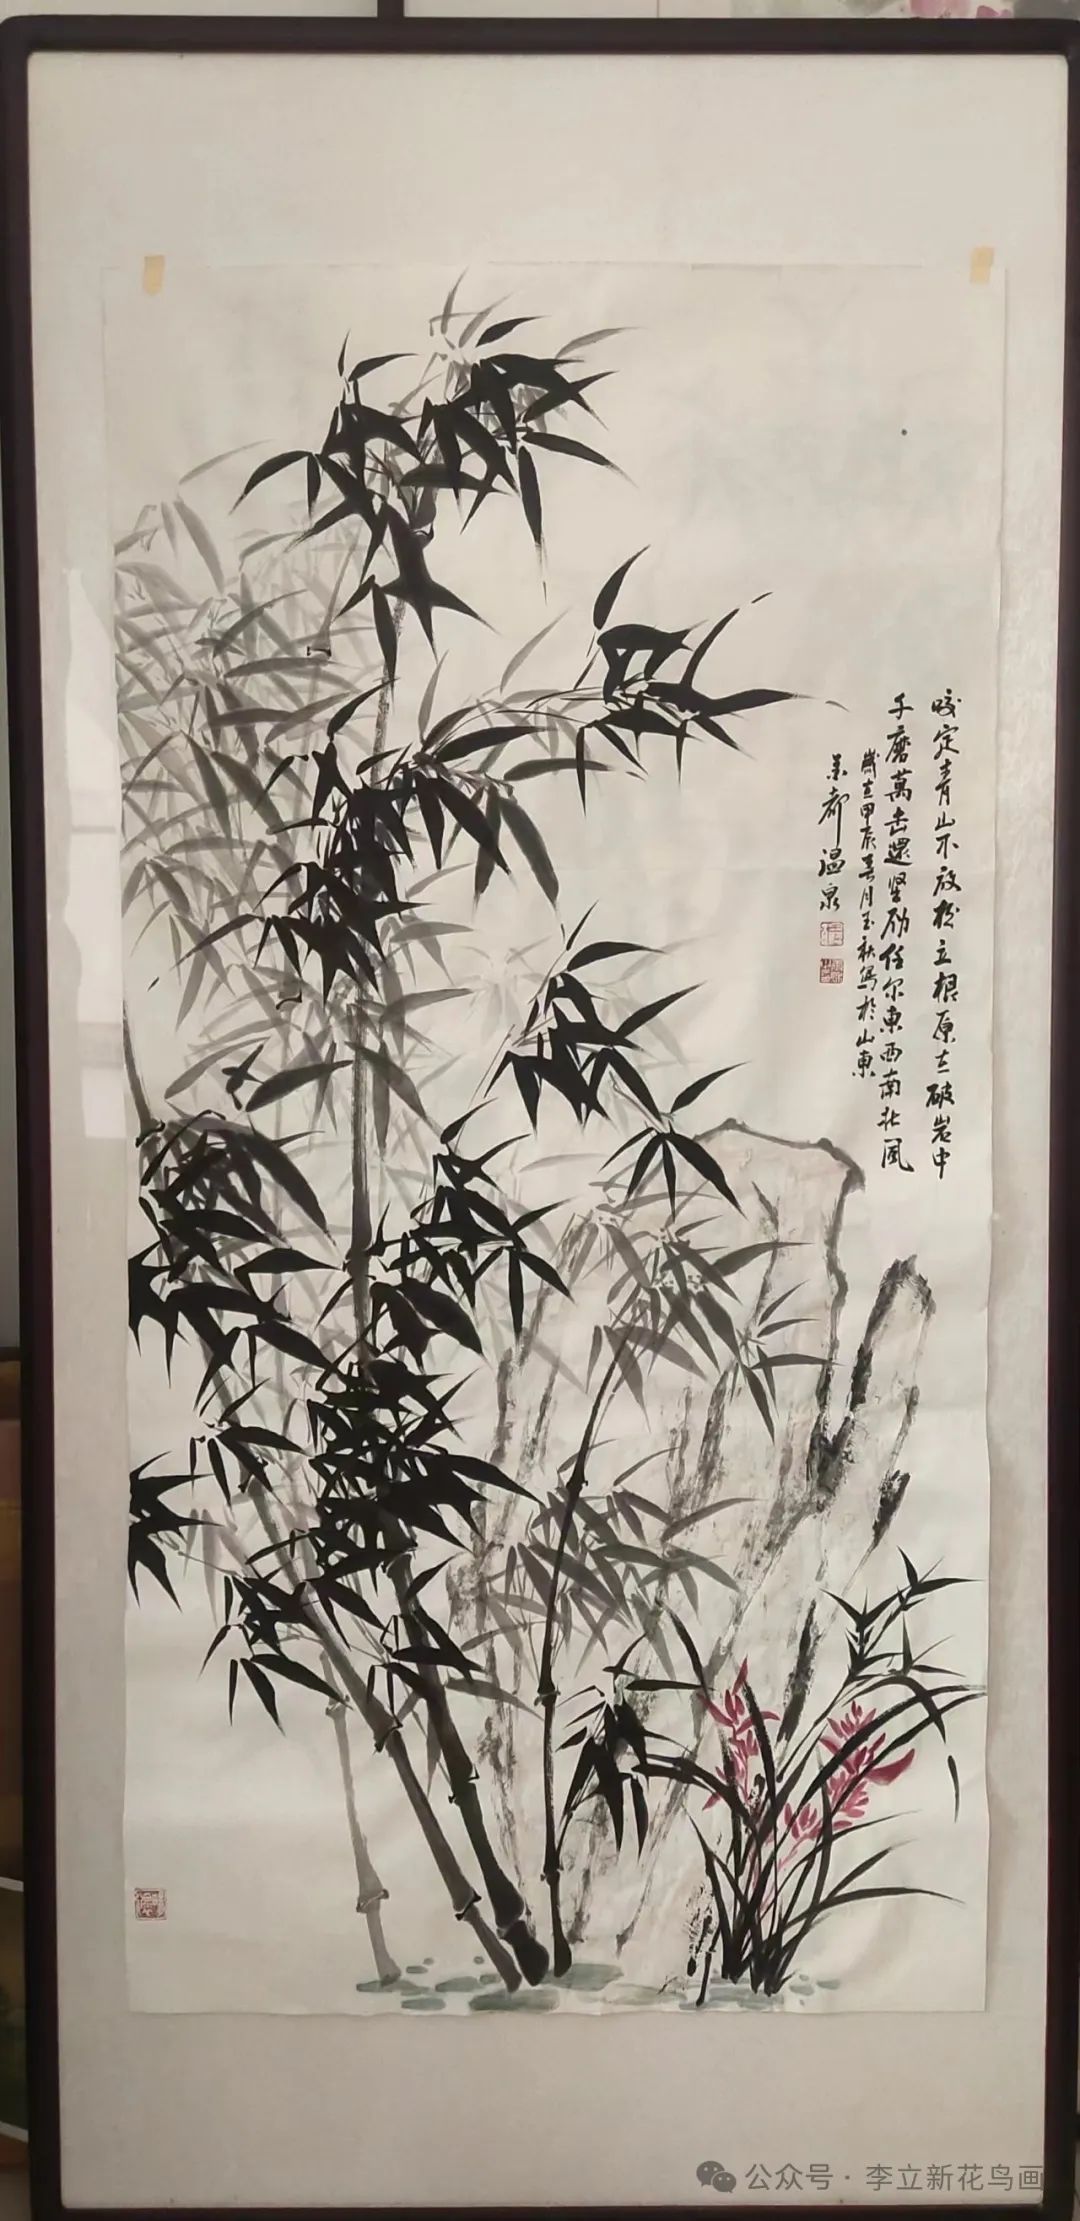 咬定青山不放松立根原在破岩中
千磨萬击還坚劲任尔東西南北風
歲在甲辰春月玉秋写於山東
果都温泉
公众号·李立新花鸟画